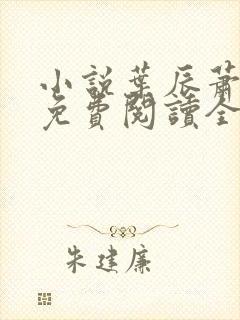 小說葉辰蕭
免費閱讀全
朱建廉